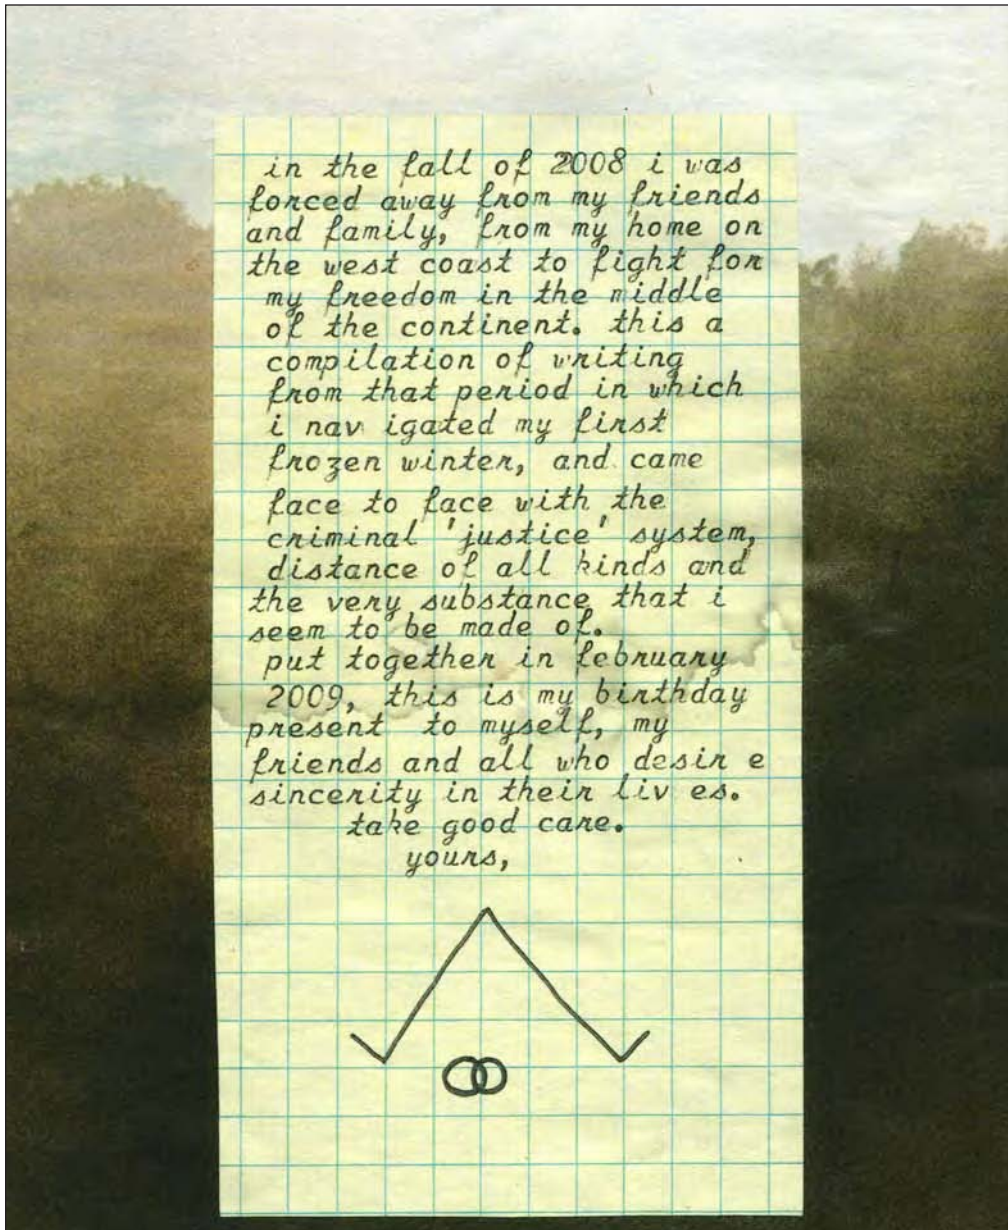 in the fall of 2008 i was
forced away from my friends
and family, from my home on
the west coast to fight for
my freedom in the middle
of the continent. this a
compilation of writing
from that period in which
i nav igated my first
frozen winter, and came
face to face with the
criminal 'justice' system,
distance of all kinds and
the very substance that i
seem to be made of.
put together in february
2009, this is my birthday
present to myself, my
friends and all who desir e
sincerity in their liv es.
take good care.
yours,